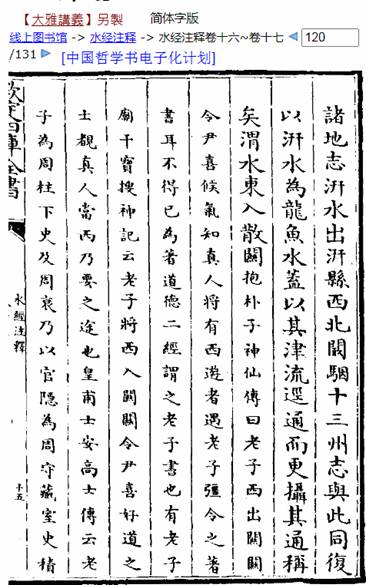 【大雅講義】另製 简体字版
线上图书馆 -> 水经注释 -> 水经注释卷十六~卷十七 120
/131 [中国哲学书电子化计划]
諸地志汧水出汧縣西北闞駰十三州志與此同復
以汧水為龍魚水蓋以其津流逕通而更攝其通稱
矣渭水東入散關抱朴子神仙傳曰老子西出關關
令尹喜候氣知真人將有西遊者遇老子彊令之著
書耳不得已為著道德二經謂之老子書也有老子
廟干寶搜神記云老子將西入關關令尹喜好道之
士覩真人當西乃要之途也皇甫士安高士傳云老
子為周柱下史及周衰乃以官隱為周守藏室史積
欽定四庫全書
水經注釋
十五